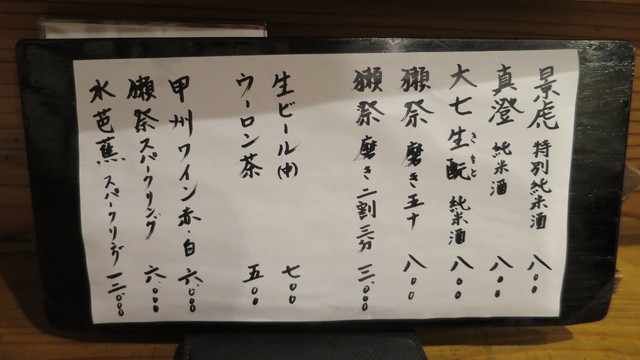 景虎 特別純米酒 八〇〇
真澄 純米酒 八〇〇
大七生酛 きもと 純米酒 八〇〇
獺祭 磨き五十 八〇〇
獺祭 磨き二割三分 三、〇〇〇
生ビール(中) 七〇〇
ウーロン茶 五〇〇
甲州ワイン赤・白 六、〇〇〇
獺祭スパークリング 六、〇〇〇
水芭蕉 スパークリング 一二、〇〇〇